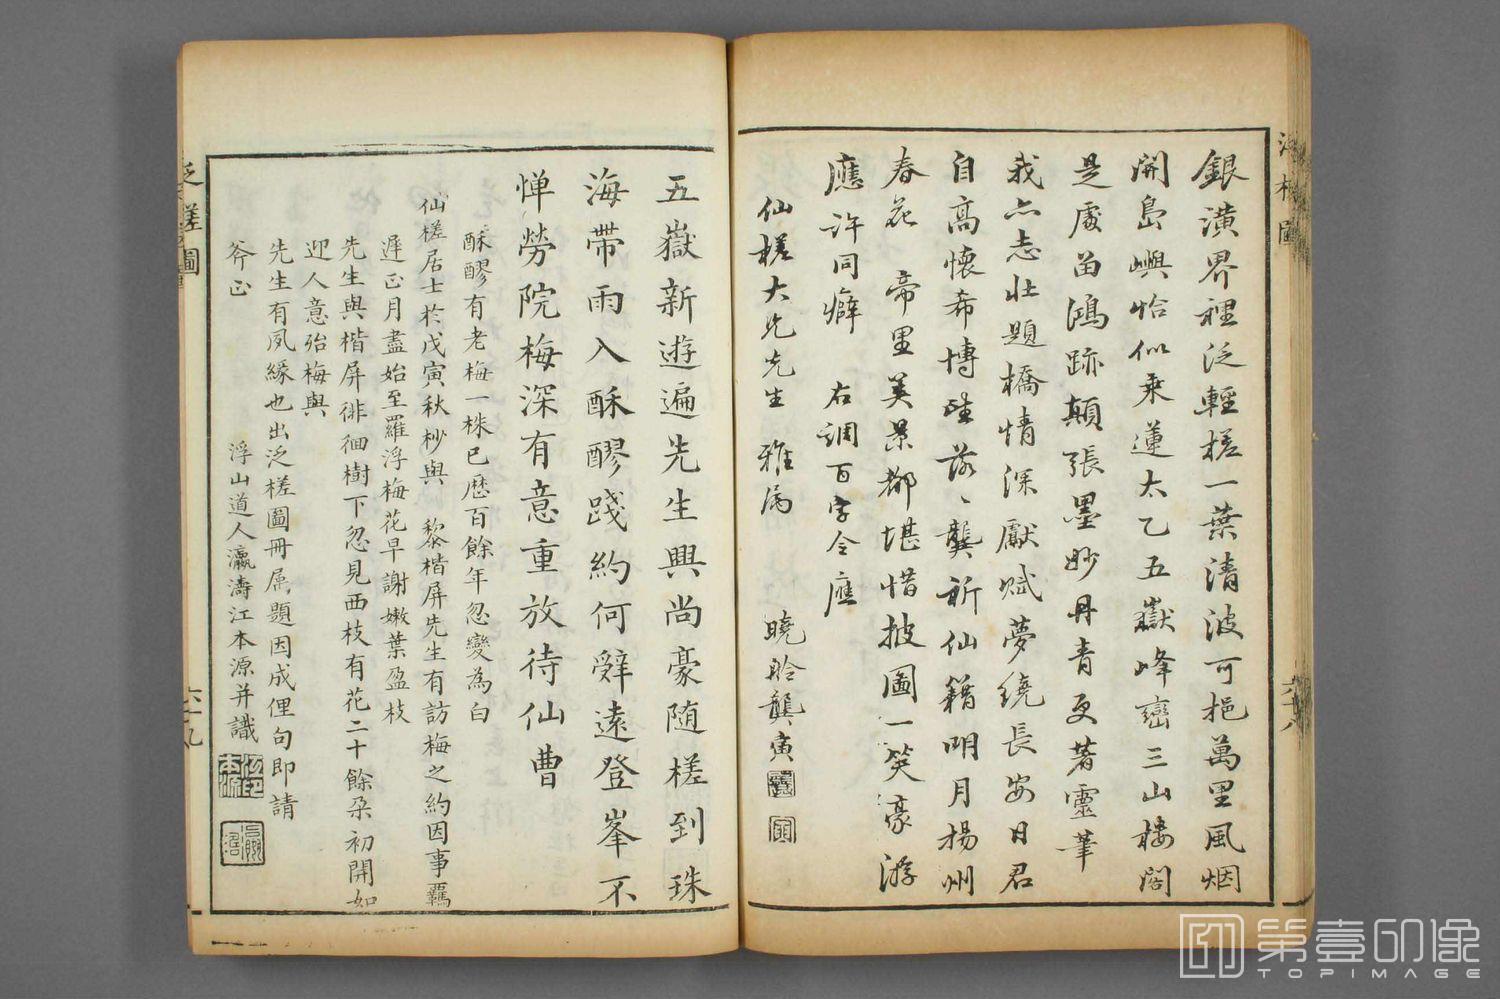 銀潢界裡泛輕槎一葉清波可挹萬里風烟
開島嶼恰似乘蓮太乙五嶽峰巒三山樓閣
是處留鴻跡顛張墨妙丹青更著靈筆
我亦志壯題橋情深獻賦夢繞長安日君
自高懷希博望落〻龔祈仙籍明月揚州
春花 帝里美景都堪惜披圖一笑豪游
應許同癖 右調百字令應
仙槎大兄先生 雅屬 曉聆龔寅
五嶽新遊遍先生興尚豪随槎到珠
海帶雨入酥醪踐約何辭遠登峯不
憚勞院梅深有意重放待仙曹
酥醪有老梅一株已歷百餘年忽變為白
仙槎居士於戊寅秋杪與 黎楷屏先生有訪梅之約因事羈
遲正月盡始至羅浮梅花早謝嫩葉盈枝
先生與楷屏徘徊樹下忽見西枝有花二十餘朶初開如
迎人意殆梅與
先生有夙緣也出泛槎圖冊属題因成俚句即請
斧正 浮山道人瀛濤江本源并識
泛槎圖
六十九